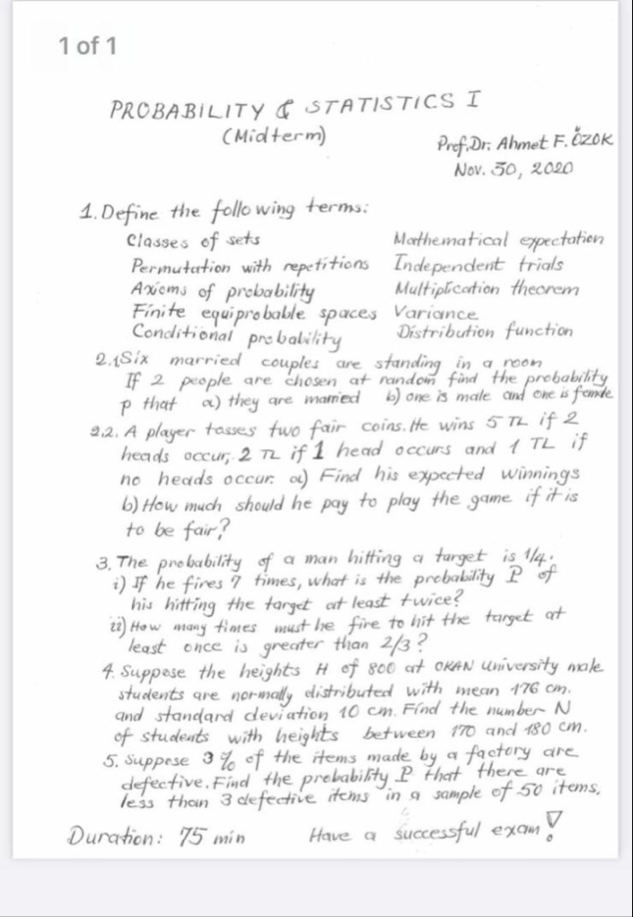 1 of 1
PROBABILITY & STATISTICS I
(Midterm)
Prof.Dr. Ahmet F. ÖZOK
Nov. 30, 2020
1. Define the following terms:
Classes of sets Mathematical expectation
Permutation with repetitions Independent trials
Axioms of probability Multiplication theorem
Finite equiprobable spaces Variance
Conditional probability Distribution function
2.1 Six married couples are standing in a room
If 2 people are chosen at random find the probability
p that a) they are married b) one is male and one is female
2.2. A player tosses two fair coins. He wins 5 TL if 2
heads occur, 2 TL if 1 head occurs and 1 TL if
no heads occur. a) Find his expected winnings
b) How much should he pay to play the game if it is
to be fair?
3. The probability of a man hitting a target is 1/4.
i) If he fires 7 times, what is the probability P of
his hitting the target at least twice?
ii) How many times must he fire to hit the target at
least once is greater than 2/3?
4. Suppose the heights H of 800 at OKAN University male
students are normally distributed with mean 176 cm.
and standard deviation 10 cm. Find the number N
of students with heights between 170 and 180 cm.
5. Suppose 3% of the items made by a factory are
defective. Find the probability P that there are
less than 3 defective items in a sample of 50 items.
Duration: 75 min Have a successful exam!